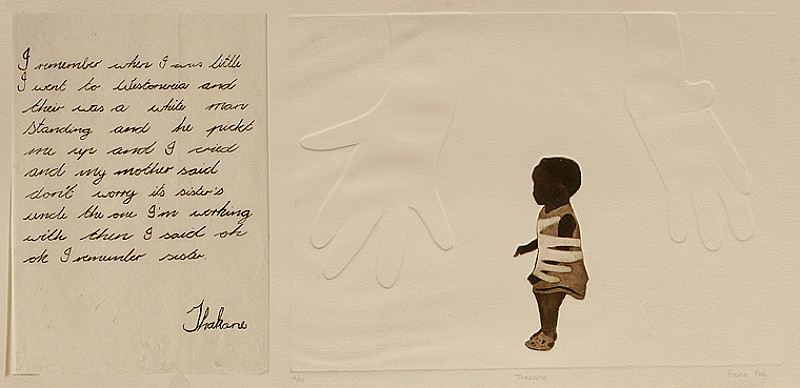 I remember when I was little
I went to Westoneria and
their was a white man
Standing and he pickt
me up and I cried
and my mother said
don't worry its sister's
uncle the one I'm working
with then I said oh
ok I remember sister.
Thakane
Thakane